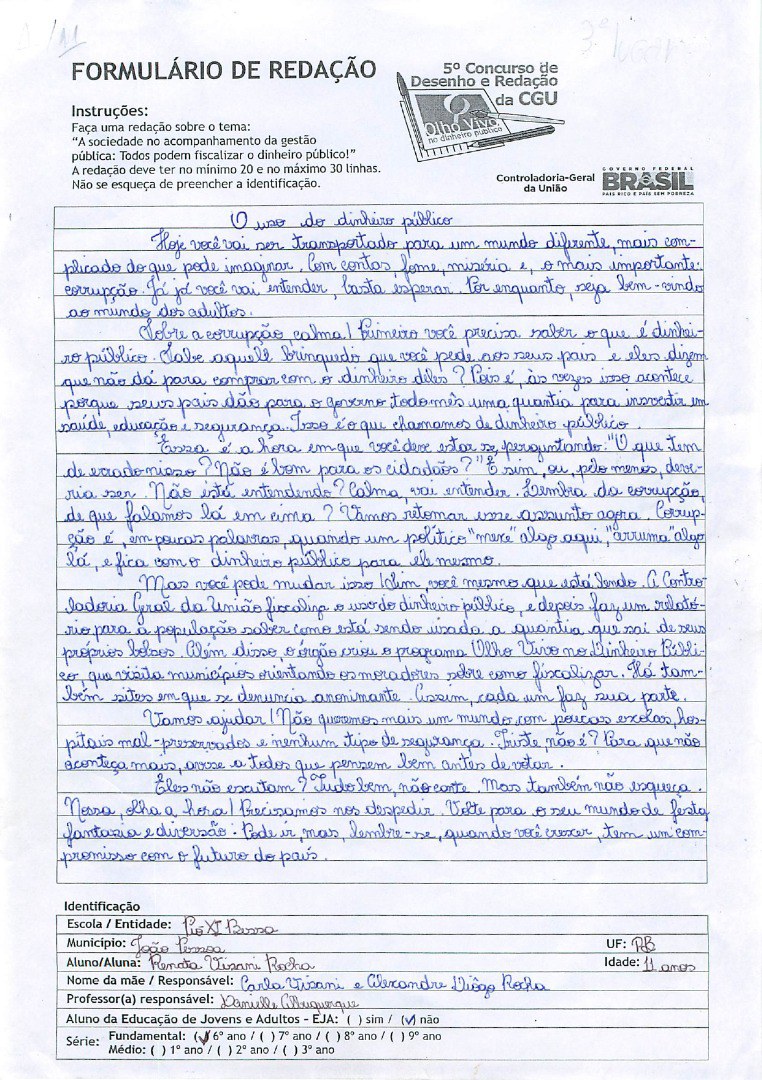 1/11
3º lugar
FORMULÁRIO DE REDAÇÃO
5º Concurso de
Desenho e Redação
da CGU
Olho Vivo
no dinheiro público
Instruções:
Faça uma redação sobre o tema:
"A sociedade no acompanhamento da gestão
pública: Todos podem fiscalizar o dinheiro público!"
A redação deve ter no mínimo 20 e no máximo 30 linhas.
Não se esqueça de preencher a identificação.
Controladoria-Geral
da União
GOVERNO FEDERAL
BRASIL
PAÍS RICO É PAÍS SEM POBREZA
O uso do dinheiro público
Hoje você vai ser transportado para um mundo diferente, mais com-
plicado do que pode imaginar. Com contas, fome, miséria e, o mais importante:
corrupção. Já já você vai entender, basta esperar. Por enquanto, seja bem-vindo
ao mundo dos adultos.
Sobre a corrupção, calma! Primeiro você precisa saber o que é dinhei-
ro público. Sabe aquele brinquedo que você pede aos seus pais e eles dizem
que não dá para comprar com o dinheiro deles? Pois é, às vezes isso acontece
porque seus pais dão para o governo todo mês uma quantia para investir em
saúde, educação e segurança. Isso é o que chamamos de dinheiro público.
Essa é a hora em que você deve estar se perguntando: "O que tem
de errado nisso? Não é bom para os cidadãos?" É sim, ou, pelo menos, deve-
ria ser. Não está entendendo? Calma, vai entender. Lembra da corrupção,
de que falamos lá em cima? Vamos retomar esse assunto agora. Corrup-
ção é, em poucas palavras, quando um político "mexe" algo aqui, "arruma" algo
lá, e fica com o dinheiro público para ele mesmo.
Mas você pode mudar isso! Sim, você mesmo que está lendo. A Contro-
ladoria Geral da União fiscaliza o uso do dinheiro público, e depois faz um relató-
rio para a população saber como está sendo usada a quantia que sai de seus
próprios bolsos. Além disso, o órgão criou o programa Olho Vivo no Dinheiro Públi-
co, que visita municípios orientando os moradores sobre como fiscalizar. Há tam-
bém sites em que se denuncia anonimante. Assim, cada um faz sua parte.
Vamos ajudar! Não queremos mais um mundo com poucas escolas, hos-
pitais mal-preservados e nenhum tipo de segurança. Triste não é? Para que não
aconteça mais, avise a todos que pensem bem antes de votar.
Eles não escutam? Tudo bem, não conte. Mas também não esqueça.
Nossa, olha a hora! Precisamos nos despedir. Volte para o seu mundo de festa,
fantasia e diversão. Pode ir, mas, lembre-se, quando você crescer, tem um com-
promisso com o futuro do país.
Identificação
Escola / Entidade: Pio XI Bessa
Município: João Pessoa UF: PB
Aluno/Aluna: Renata Visani Rocha Idade: 11 anos
Nome da mãe / Responsável: Carla Visani e Alexandre Diôgo Rocha
Professor(a) responsável: Danielle Albuquerque
Aluno da Educação de Jovens e Adultos - EJA: ( ) sim / (✓) não
Série: Fundamental: (✓) 6º ano / ( ) 7º ano / ( ) 8º ano / ( ) 9º ano
Médio: ( ) 1º ano / ( ) 2º ano / ( ) 3º ano